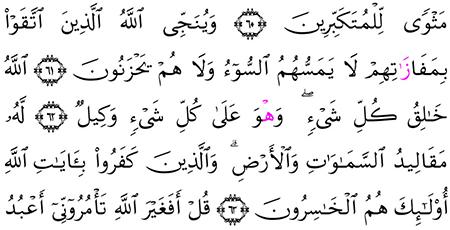 مَثْوًى لِّلْمُتَكَبِّرِينَ ٦٠ وَيُنَجِّى ٱللَّهُ ٱلَّذِينَ ٱتَّقَوْا۟
بِمَفَازَٰتِهِمْ لَا يَمَسُّهُمُ ٱلسُّوٓءُ وَلَا هُمْ يَحْزَنُونَ ٦١ ٱللَّهُ
خَٰلِقُ كُلِّ شَىْءٍ ۖ وَهْوَ عَلَىٰ كُلِّ شَىْءٍ وَكِيلٌ ٦٢ لَّهُۥ
مَقَالِيدُ ٱلسَّمَٰوَٰتِ وَٱلْأَرْضِ ۗ وَٱلَّذِينَ كَفَرُوا۟ بِـَٔايَٰتِ ٱللَّهِ
أُو۟لَٰٓئِكَ هُمُ ٱلْخَٰسِرُونَ ٦٣ قُلْ أَفَغَيْرَ ٱللَّهِ تَأْمُرُوٓنِّىٓ أَعْبُدُ